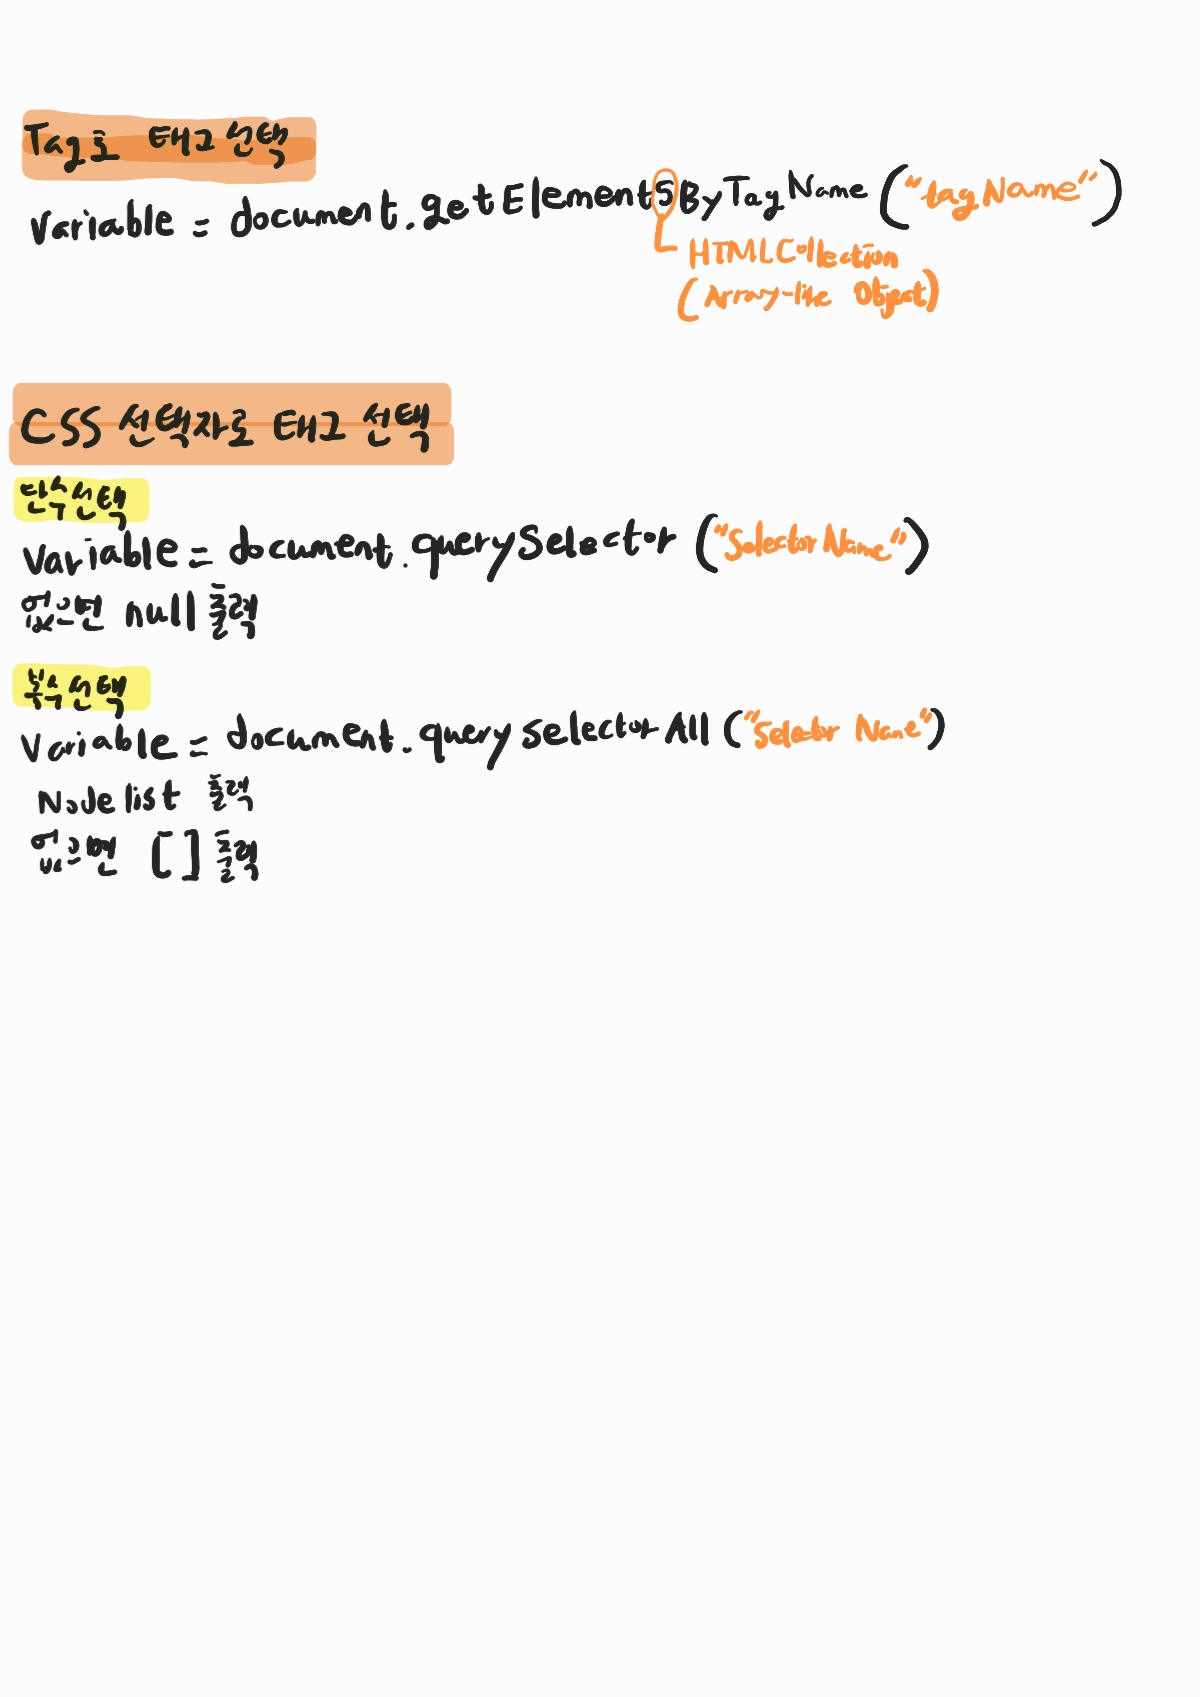 Tag로 태그 선택
Variable = document.getElementsByTagName("tagName")
HTMLCollection
(Array-like Object)
CSS 선택자로 태그 선택
단수선택
Variable = document.querySelector("SelectorName")
없으면 null 출력
복수선택
Variable = document.queryselectorAll("Selector Name")
Node list 출력
없으면 [] 출력